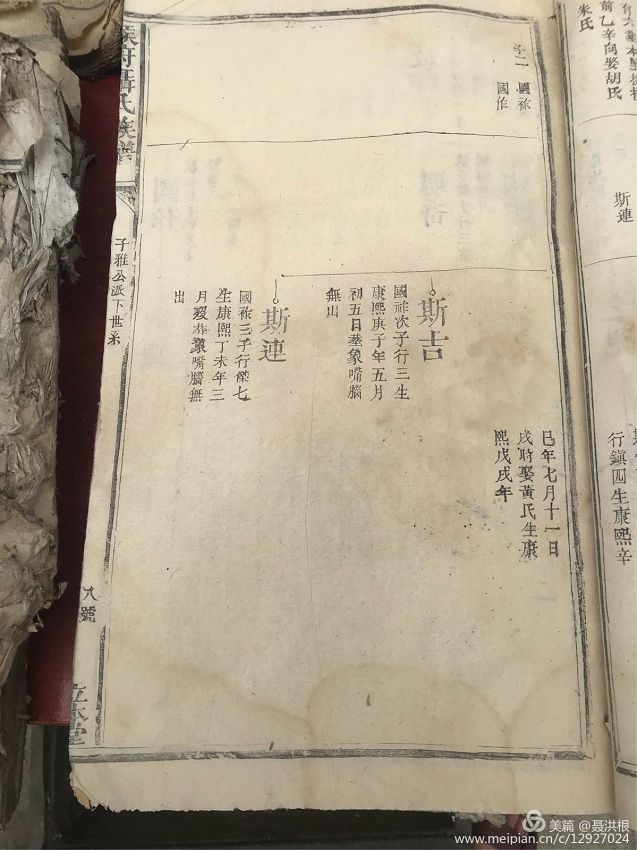 朱氏
前乙辛向娶胡氏
斯連
行鎮四生康熙辛
子二
國祢
國作
巳年七月十一日
戌時娶黃氏生康
熙戊戌年
斯吉
國祚次子行三生
康熙庚子年五月
初五日塟象嘴腦
無出
斯連
國祢三子行傑七
生康熙丁未年三
月歿葬象嘴腦無
出
聶氏族譜
子雅公派下世系
八號
立本堂
美篇 @聂洪根
www.meipian.cn/c/12927024